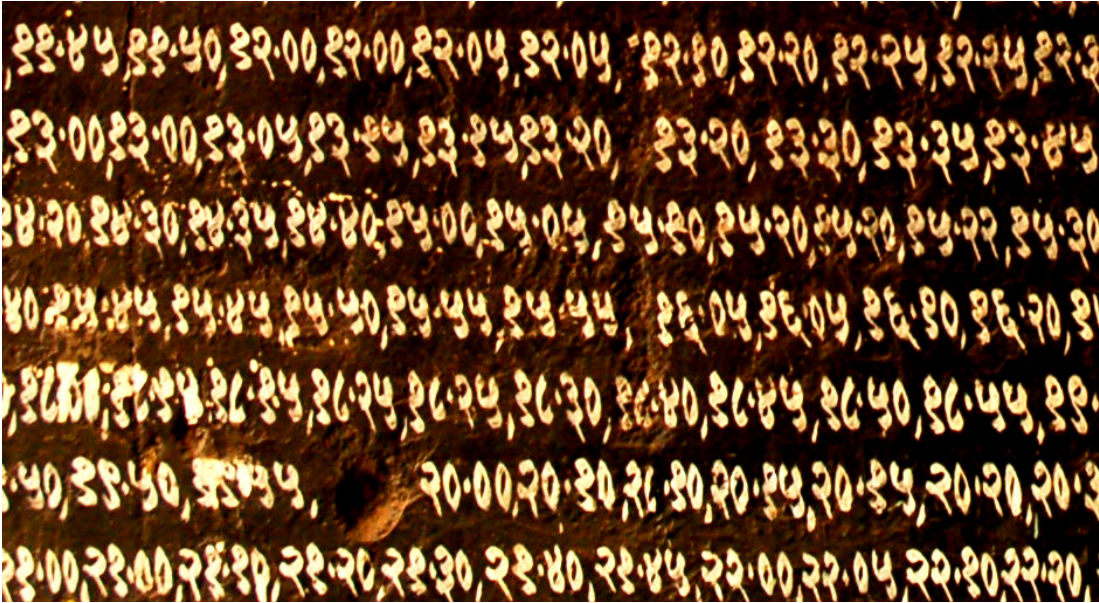 ,११·४५,११·५०,१२·००,१२·००,१२·०५,१२·०५, १२·१०,१२·२०,१२·२५,१२·२५,१२·३
,१३·००,१३·००,१३·०५,१३·१५,१३·१५,१३·२०, १३·२०,१३·३०,१३·३५,१३·४५
१४·२०,१४·३०,१४·३५,१४·४०,१५·००,१५·०५,१५·१०,१५·२०,१५·२०,१५·२२,१५·३०
४०,१५·४५,१५·४५,१५·५०,१५·५५,१५·५५, १६·०५,१६·०५,१६·१०,१६·२०,
१८·१५,१८·२५,१८·२५,१८·३०,१८·४०,१८·४५,१८·५०,१८·५५,१९·
·५०,१९·५०,१९·५५, २०·००,२०·१०,२८·१०,२०·१५,२०·१५,२०·२०,२०·३
१·००,२१·००,२१·१०,२१·२०,२१·३०,२१·४०,२१·४५,२२·००,२२·०५,२२·१०,२२·२०,